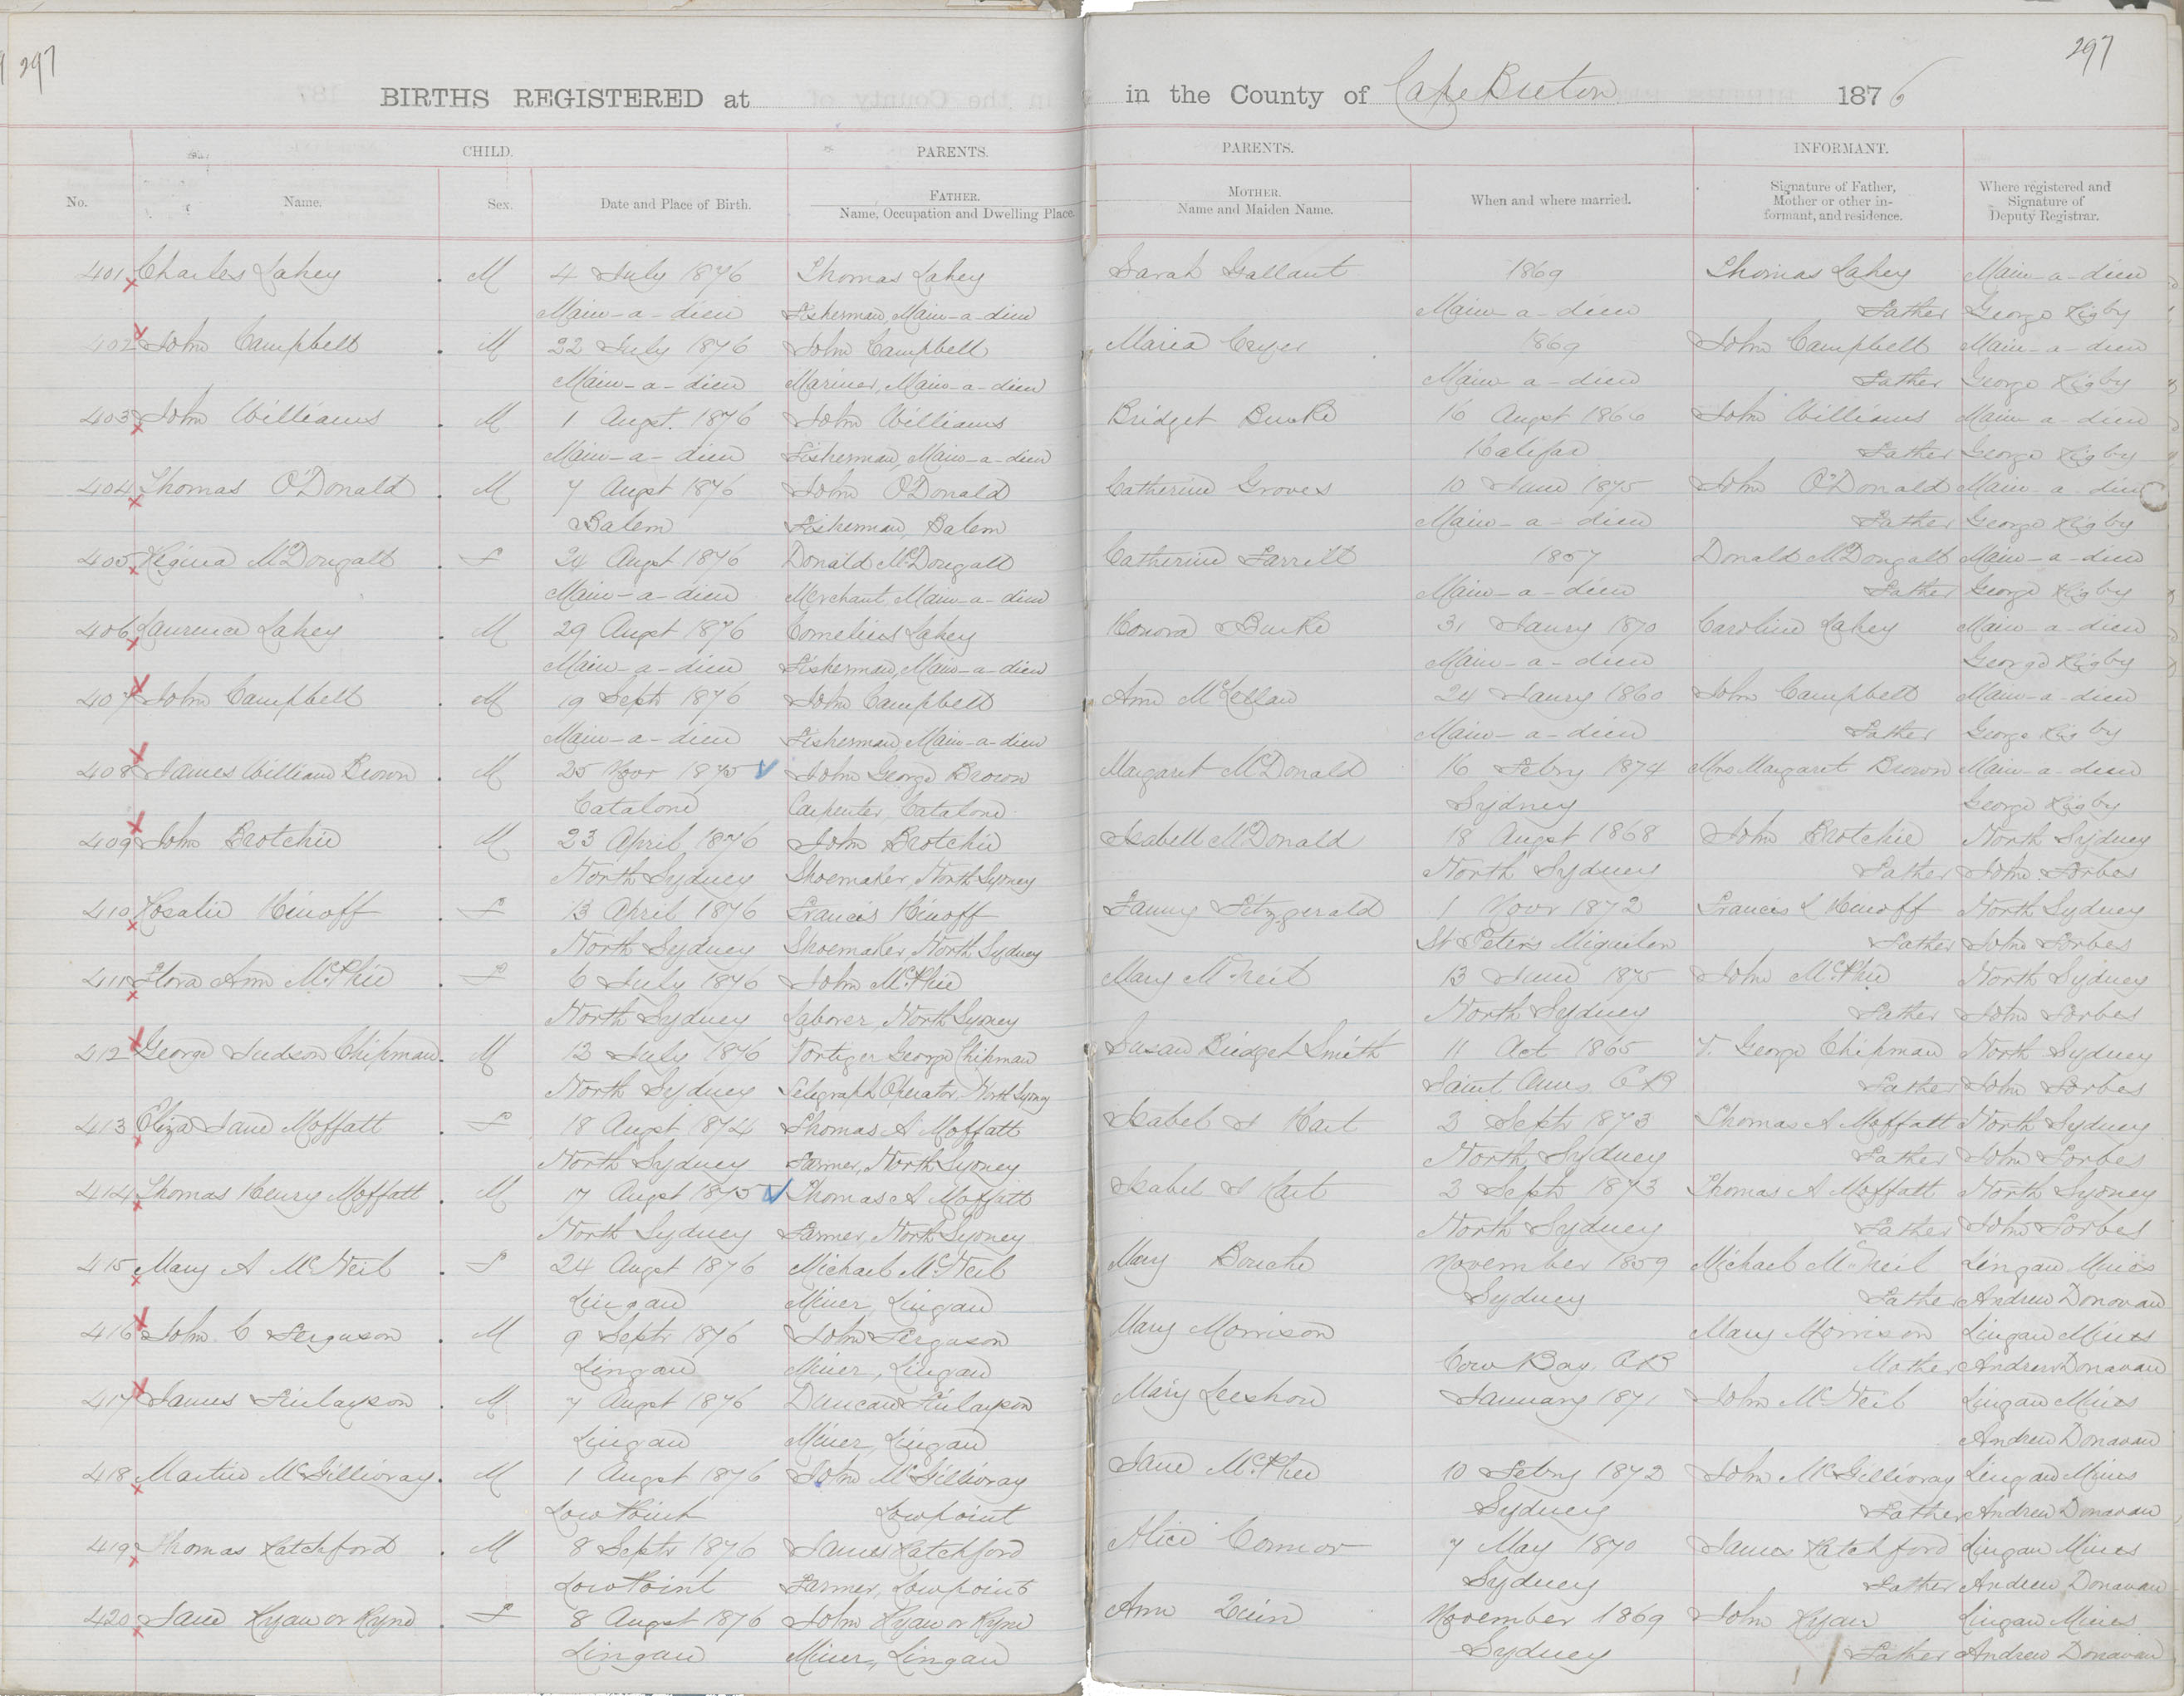 297
297
BIRTHS REGISTERED at in the County of Cape Breton 1876
CHILD. PARENTS. PARENTS. INFORMANT.
No. Name. Sex. Date and Place of Birth. FATHER. Name, Occupation and Dwelling Place. MOTHER. Name and Maiden Name. When and where married. Signature of Father, Mother or other informant, and residence. Where registered and Signature of Deputy Registrar.
401 Charles Lahey M 4 July 1876 Thomas Lahey Sarah Gallant 1869 Thomas Lahey Main-a-dieu
Main-a-dieu Fisherman, Main-a-dieu Main-a-dieu Father George Rigby
402 John Campbell M 22 July 1876 John Campbell Maria Cryer 1869 John Campbell Main-a-dieu
Main-a-dieu Mariner, Main-a-dieu Main-a-dieu Father George Rigby
403 John Williams M 1 Augst. 1876 John Williams Bridget Burke 16 Augst 1866 John Williams Main-a-dieu
Main-a-dieu Fisherman, Main-a-dieu Halifax Father George Rigby
404 Thomas O'Donald M 7 Augst 1876 John O'Donald Catherine Groves 10 June 1875 John O'Donald Main-a-dieu
Balem Fisherman, Balem Main-a-dieu Father George Rigby
405 Regina McDougall F 24 Augst 1876 Donald McDougall Catherine Farrell 1857 Donald McDougall Main-a-dieu
Main-a-dieu Merchant, Main-a-dieu Main-a-dieu Father George Rigby
406 Laurence Lahey M 29 Augst 1876 Cornelius Lahey Honora Burke 31 Jaury 1870 Caroline Lahey Main-a-dieu
Main-a-dieu Fisherman, Main-a-dieu Main-a-dieu George Rigby
407 John Campbell M 19 Septr 1876 John Campbell Ann McLellan 24 Jaury 1860 John Campbell Main-a-dieu
Main-a-dieu Fisherman, Main-a-dieu Main-a-dieu Father George Rigby
408 James William Brown M 25 Novr 1875 John George Brown Margaret McDonald 16 Febry 1874 Mrs Margaret Brown Main-a-dieu
Catalone Carpenter, Catalone Sydney George Rigby
409 John Brotchie M 23 April 1876 John Brotchie Isabell McDonald 18 Augst 1868 John Brotchie North Sydney
North Sydney Shoemaker, North Sydney North Sydney Father John Forbes
410 Rosalie Hinoff F 13 April 1876 Francis Hinoff Fanny Fitzgerald 1 Novr 1872 Francis L Hinoff North Sydney
North Sydney Shoemaker, North Sydney St Peters Miquelon Father John Forbes
411 Flora Ann McPhie F 6 July 1876 John McPhie Mary McNeil 13 June 1875 John McPhie North Sydney
North Sydney Laborer, North Sydney North Sydney Father John Forbes
412 George Judson Chipman M 12 July 1876 George Chipman Susan Bridget Smith 11 Oct 1865 George Chipman North Sydney
North Sydney Telegraph Operator, North Sydney Saint Anns. C.B. Father John Forbes
413 Eliza Jane Moffatt F 18 Augst 1874 Thomas A Moffatt Isabel J Hart 2 Septr 1873 Thomas A Moffatt North Sydney
North Sydney Farmer, North Sydney North Sydney Father John Forbes
414 Thomas Henry Moffatt M 17 Augst 1875 Thomas A Moffatt Isabel J Hart 2 Septr 1873 Thomas A Moffatt North Sydney
North Sydney Farmer, North Sydney North Sydney Father John Forbes
415 Mary A McNeil F 24 Augst 1876 Michael McNeil Mary Bouche November 1859 Michael McNeil Lingan Mines
Lingan Miner, Lingan Sydney Father Andrew Donovan
416 John C Ferguson M 9 Septr 1876 John Ferguson Mary Morrison Mary Morrison Lingan Mines
Lingan Miner, Lingan Cow Bay, C.B. Mother Andrew Donavan
417 James Finlayson M 7 Augst 1876 Duncan Finlayson Mary January 1871 John McNeil Lingan Mines
Lingan Miner, Lingan Andrew Donavan
418 Martin McGillivray M 1 Augst 1876 John McGillivray Jane McPhee 10 Febry 1872 John McGillivray Lingan Mines
Low Point Lowpoint Sydney Father Andrew Donavan
419 Thomas Ratchford M 8 Septr 1876 James Ratchford Alice Connor 7 May 1870 James Ratchford Lingan Mines
Low Point Farmer, Lowpoint Sydney Father Andrew Donavan
420 Jane Ryan or Ryne F 8 Augst 1876 John Ryan or Ryne Ann Quin November 1869 John Ryan Lingan Mines
Lingan Miner, Lingan Sydney Father Andrew Donavan